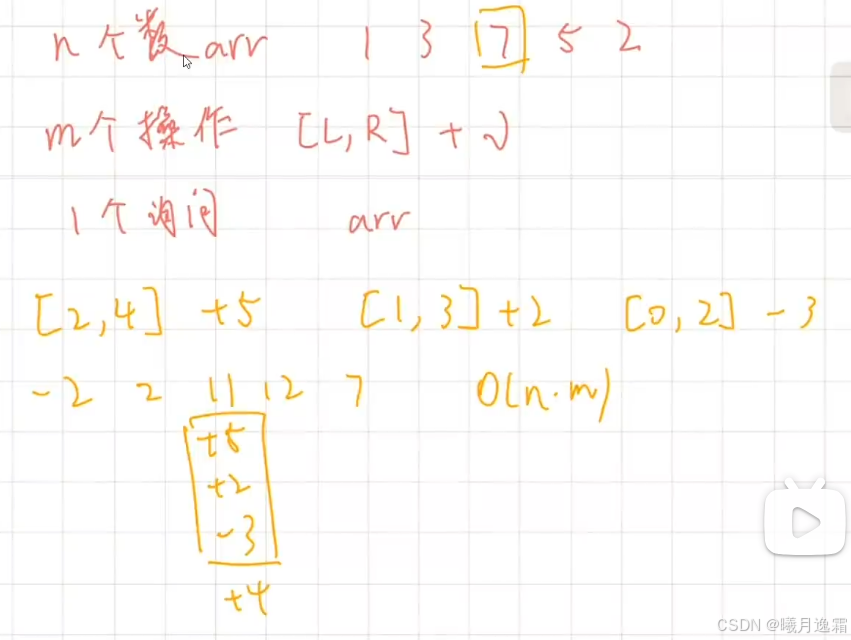 n个数 arr 1 3 7 5 2
m个操作 [L,R] + v
1个询问 arr
[2,4] +5 [1,3] +2 [0,2] -3
-2 2 11 12 7 O(n·m)
+5
+2
-3
+4
CSDN @曦月逸霜